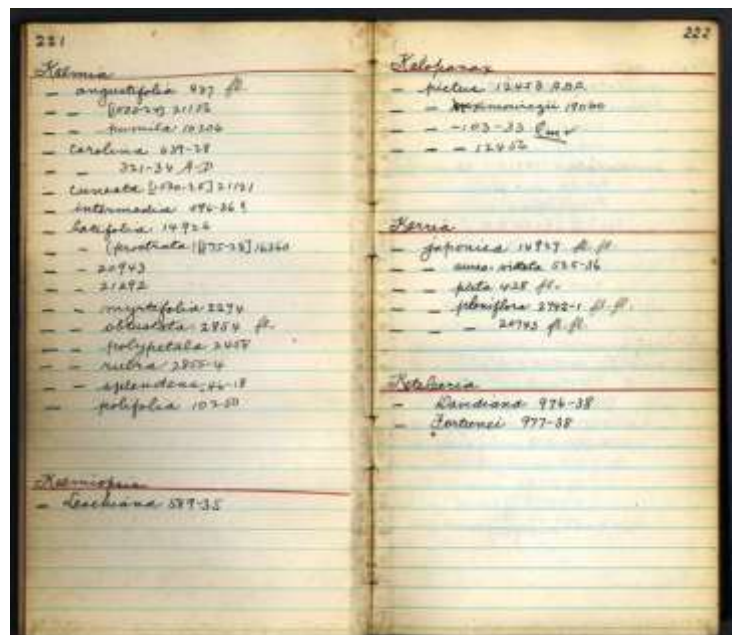 221
Kalmia
— angustifolia 437 fl.
— — 21152
— — pumila 10306
— Carolina 639-28
— — 321-34 A.D
— cuneata [1520-25] 21121
— intermedia 496-36
— latifolia 14926
— — (prostrata) [175-28] 16360
— — 20943
— — 21292
— — myrtifolia 2274
— — obtusata 2854 fl.
— — polypetala 2458
— — rubra 2855-4
— — splendens 46-18
— polifolia
Kalmiopsis
— Leachiana 589-35
222
Kalopanax
— pictus 12453
— — Maximowiczii 19060
— — -103-33
— — — 12456
Kerria
— japonica 14927 fl. fl.
— — aureo-vittata 535-36
— — picta 428 fl.
— — pleniflora 2942-1 fl. fl.
— — — 20743 fl. fl.
Keteleeria
— Davidiana 976-38
— Fortunei 977-38